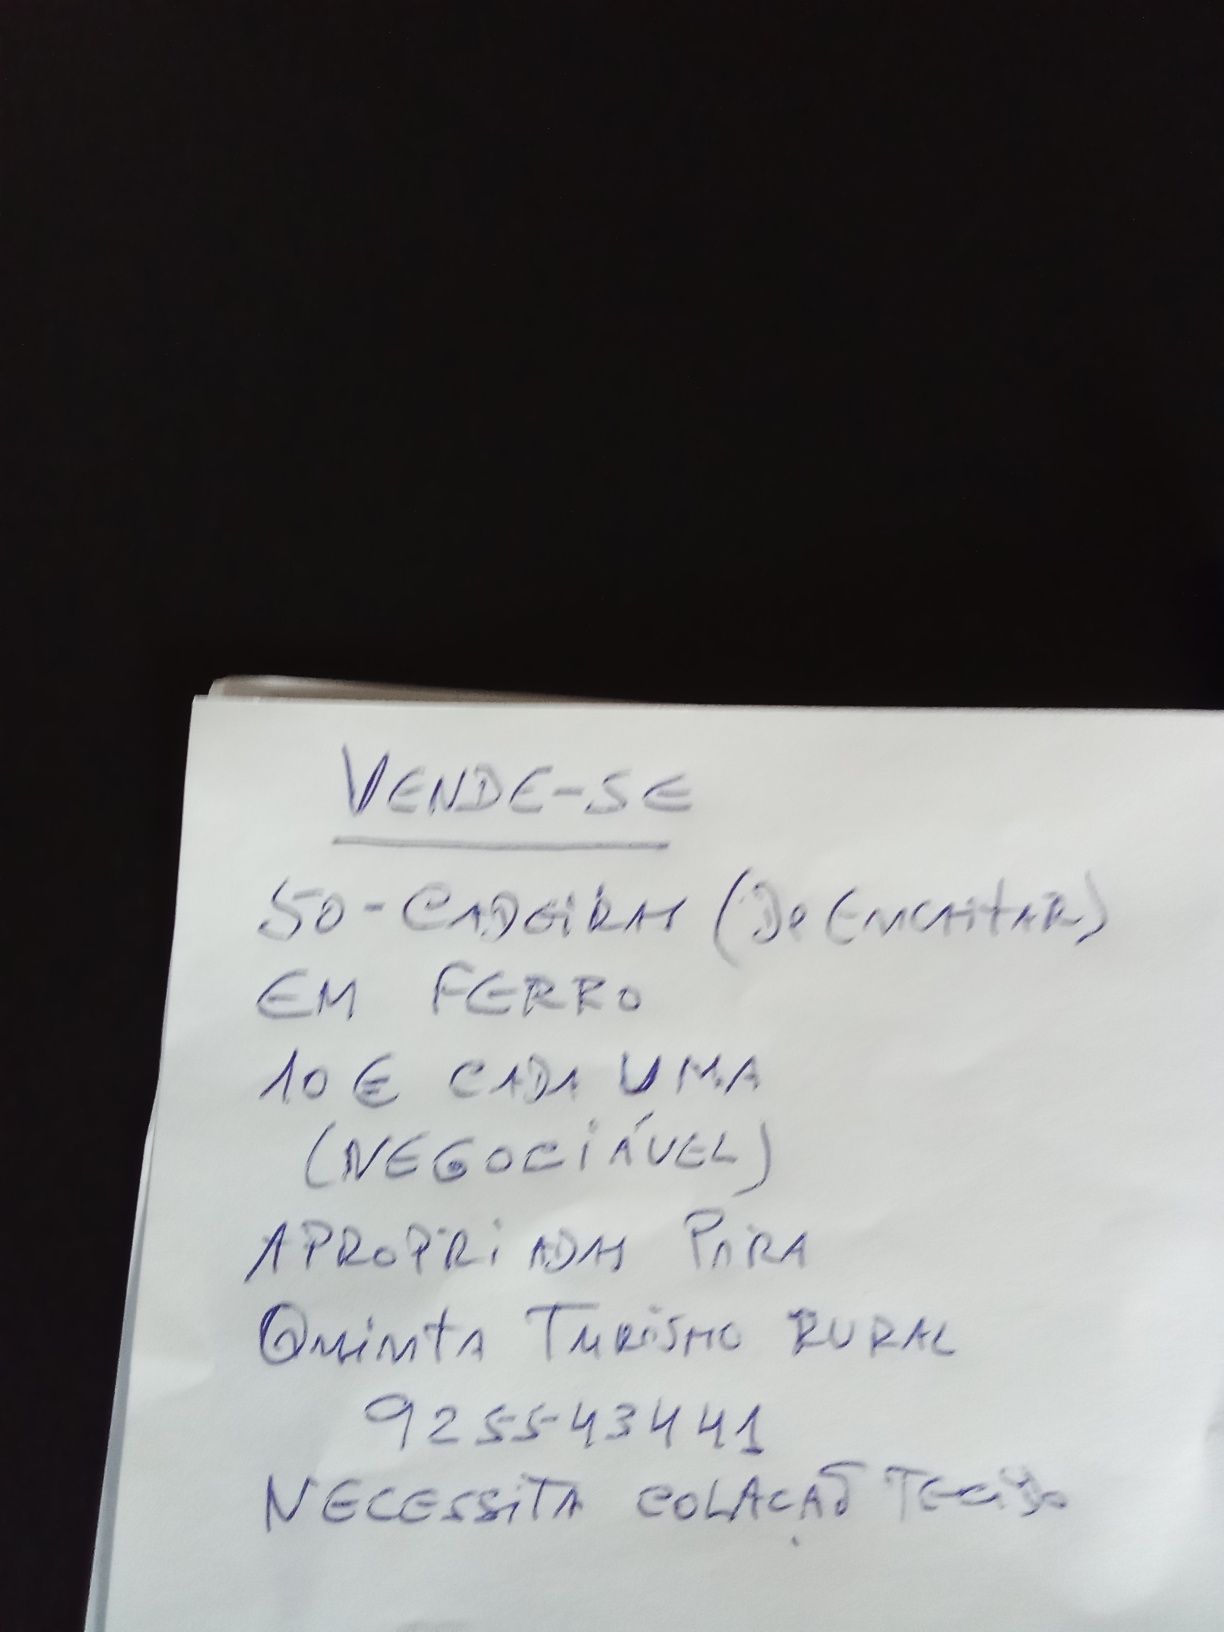 VENDE-SE
50-CADEIRAS (De ENCAITAR)
EM FERRO
10€ CADA UMA
(NEGOCIÁVEL)
APROPRIADAS PARA
QUINTA TURISMO RURAL
925543441
NECESSITA COLAÇAÕ TECIDO